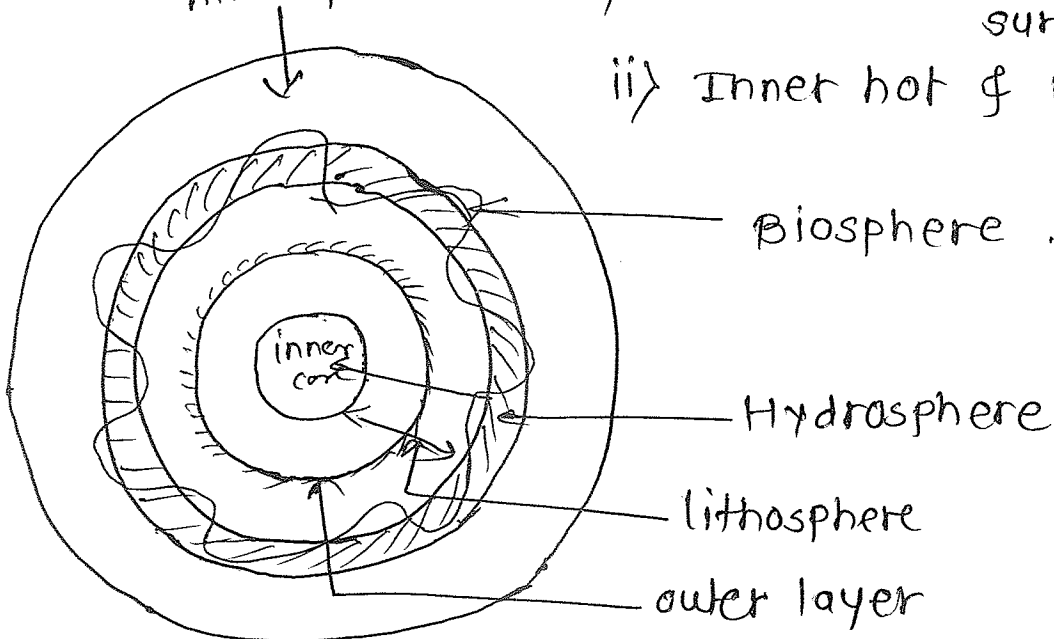 sur
ii) Inner hot &
Biosphere .
inner
core
Hydrosphere
lithosphere
outer layer